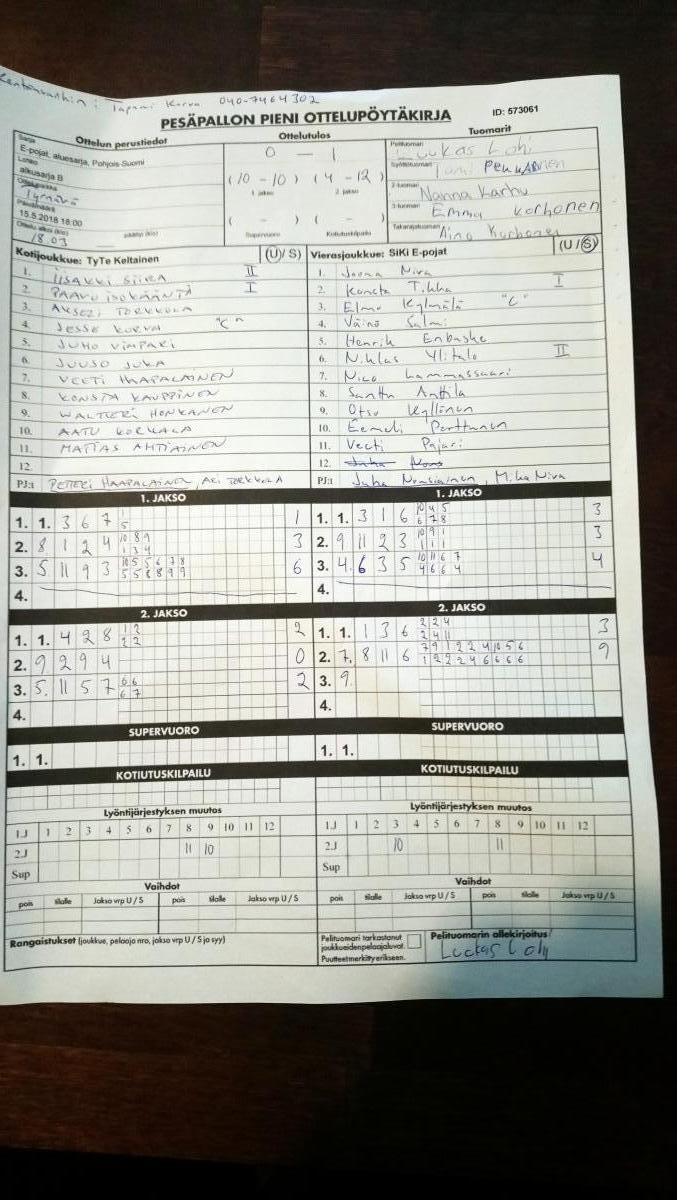 Kentänvanhin : Tapani Korva 040-7464302
PESÄPALLON PIENI OTTELUPÖYTÄKIRJA ID: 573061
Ottelun perustiedot Ottelutulos Tuomarit
Sarja
E-pojat, aluesarja, Pohjois-Suomi
Lohko
alkusarja B
Ottelupaikka
Tyrnävä
Päivämäärä
15.5.2018 18:00
Ottelu alkoi (klo) päättyi (klo)
18.03
0 - 1
(10 - 10) (4 - 12)
1. jakso 2. jakso
( - ) ( - )
Supervuoro Kotiutuskilpailu
Pelituomari
Luukas Lohi
Syöttötuomari
2-tuomari
Nanna Karhu
3-tuomari
Emma Korhonen
Takarajatuomari
Aino Korhonen
Kotijoukkue: TyTe Keltainen (U / S)
1. IISAKKI SIIRA II
2. PAAVO ISOKÄÄNTÄ I
3. AKSELI TORKKOLA
4. JESSE KORVA "C"
5. JUHO VIMPARI
6. JUUSO JUKA
7. VEETI HAAPALAINEN
8. KONSTA KAUPPINEN
9. WALTTERI HONKANEN
10. AATU KORKALA
11. MATIAS AHTIAINEN
12.
PJ:t PETTERI HAAPALAINEN, ARI TORKKOLA
Vierasjoukkue: SiKi E-pojat (U / S)
1. Joona Niva
2. Konsta Tikka I
3. Elmo Kylmälä "C"
4. Väinö Salmi
5. Henrik Enbuske
6. Niklas Ylitalo II
7. Nico Lammassaari
8. Santtu Anttila
9. Otso Kyllönen
10. Eemeli Porttunen
11. Veeti Pajari
12.
PJ:t Juha Nousiainen, Mika Niva
1. JAKSO
1. 1. 3 6 7 1 5 1
2. 8 1 2 4 10 8 9 1 3 4 3
3. 5 11 9 3 10 5 5 6 7 8 5 5 8 8 9 9 6
4.
1. JAKSO
1. 1. 3 1 6 10 4 5 6 7 8 3
2. 9 11 2 3 10 9 1 1 1 1 3
3. 4. 6 3 5 10 11 6 7 4 6 6 4 4
4.
2. JAKSO
1. 1. 4 2 8 1 2 2 2 2
2. 9 2 9 4 0
3. 5. 11 5 7 6 6 6 7 2
4.
2. JAKSO
1. 1. 1 3 6 2 2 4 2 4 11 3
2. 7. 8 11 6 7 9 1 2 2 4 10 5 6 1 2 2 2 4 6 6 6 6 9
3. 9.
4.
SUPERVUORO
1. 1.
SUPERVUORO
1. 1.
KOTIUTUSKILPAILU
KOTIUTUSKILPAILU
Lyöntijärjestyksen muutos
1.J 1 2 3 4 5 6 7 8 9 10 11 12
2.J 11 10
Sup
Lyöntijärjestyksen muutos
1.J 1 2 3 4 5 6 7 8 9 10 11 12
2.J 10 11
Sup
Vaihdot
pois tilalle Jakso vrp U / S pois tilalle Jakso vrp U / S
Vaihdot
pois tilalle Jakso vrp U / S pois tilalle Jakso vrp U / S
Rangaistukset (joukkue, pelaaja nro, jakso vrp U / S ja syy)
Pelituomari tarkastanut
joukkueiden pelaajaluvat.
Puutteet merkitty erikseen.
Pelituomarin allekirjoitus
Luukas Lohi